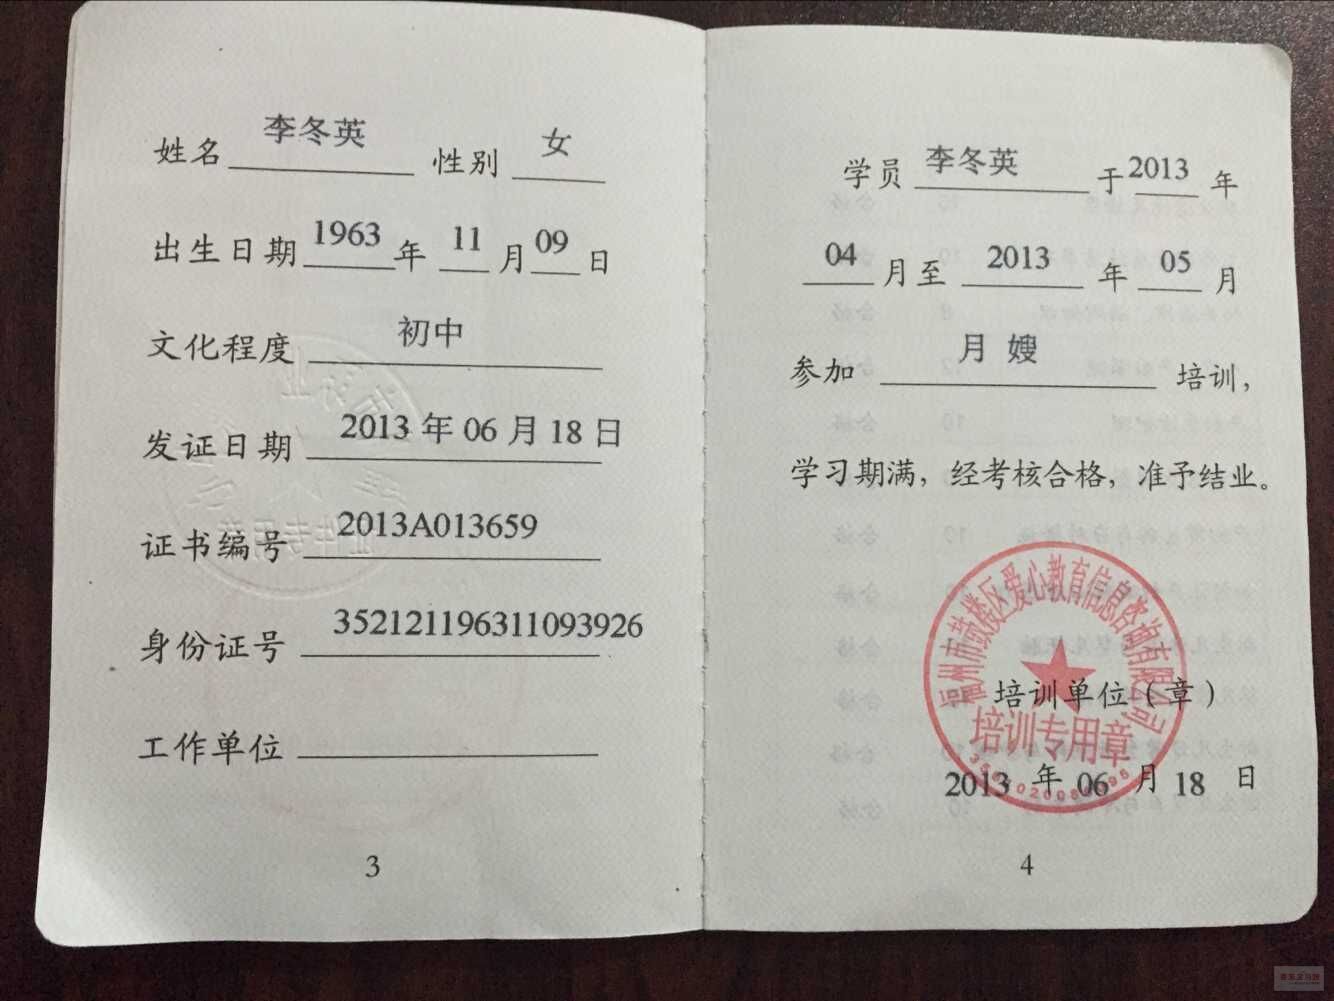 姓名 李冬英 性别 女
出生日期 1963 年 11 月 09 日
文化程度 初中
发证日期 2013 年 06 月 18 日
证书编号 2013A013659
身份证号 352121196311093926
工作单位
3
学员 李冬英 于 2013 年
04 月至 2013 年 05 月
参加 月嫂 培训，
学习期满，经考核合格，准予结业。
福州市鼓楼区爱心教育信息咨询有限公司
培训单位（章）
培训专用章
2013 年 06 月 18 日
4